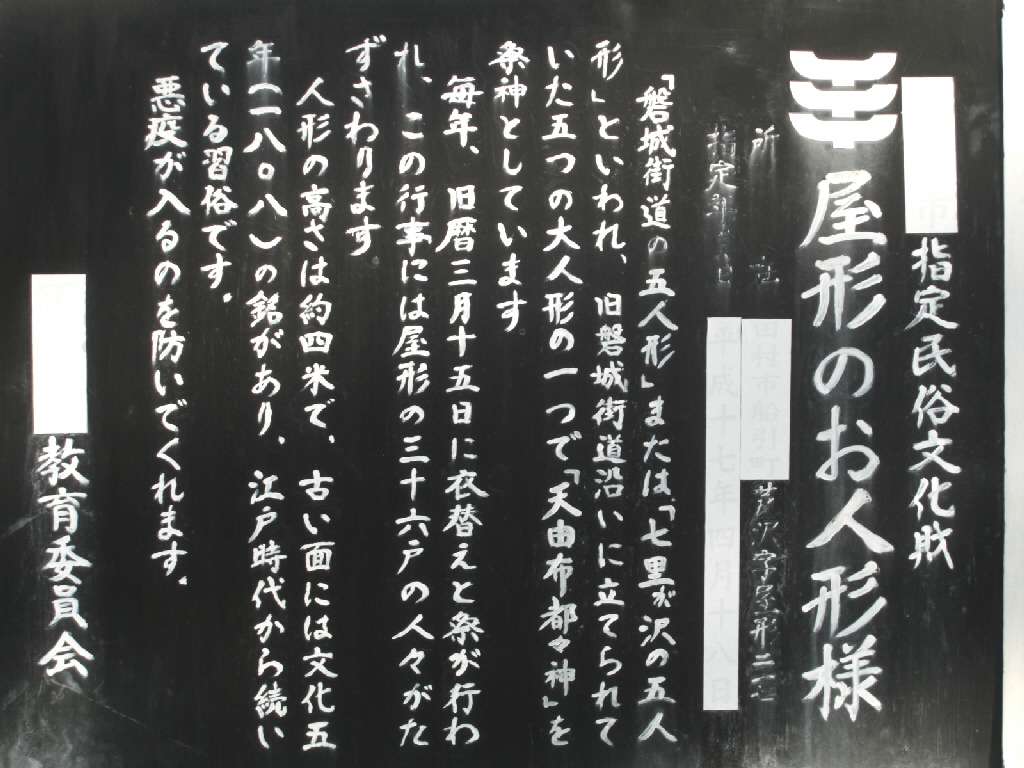 市指定民俗文化財
屋形のお人形様
所在
田村市船引町芦沢字屋形
指定年月日
平成十七年四月十八日
「磐城街道の五人形」または「七里ガ沢の五人
形」といわれ、旧磐城街道沿いに立てられて
いた五つの大人形の一つで「天由布都々神」を
祭神としています
毎年、旧暦三月十五日に衣替えと祭が行わ
れ、この行事には屋形の三十六戸の人々がた
ずさわります
人形の高さは約四米で、古い面には文化五
年(一八〇八)の銘があり、江戸時代から続い
ている習俗です。
悪疫が入るのを防いでくれます。
教育委員会